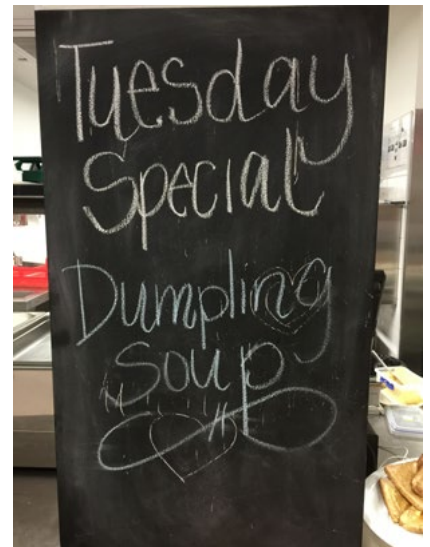 Tuesday
Special
Dumpling
Soup